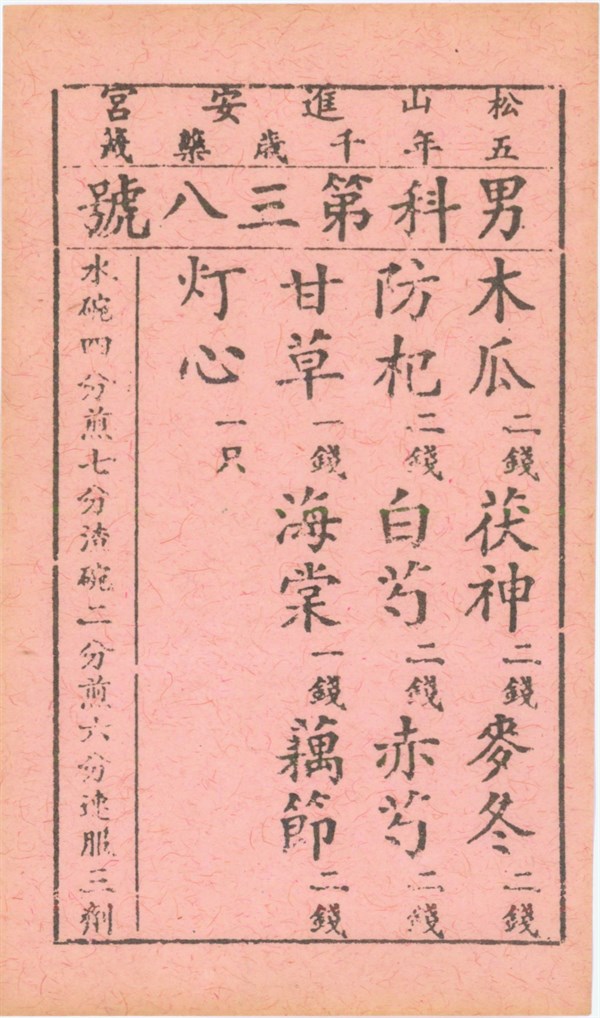 松山進安宮
五年千歲藥籤
男科第三八號
木瓜二錢 茯神二錢 麥冬二錢
防杞二錢 白芍二錢 赤芍二錢
甘草一錢 海棠一錢 藕節二錢
灯心一只
水碗四分煎七分渣碗二分煎六分連服三劑